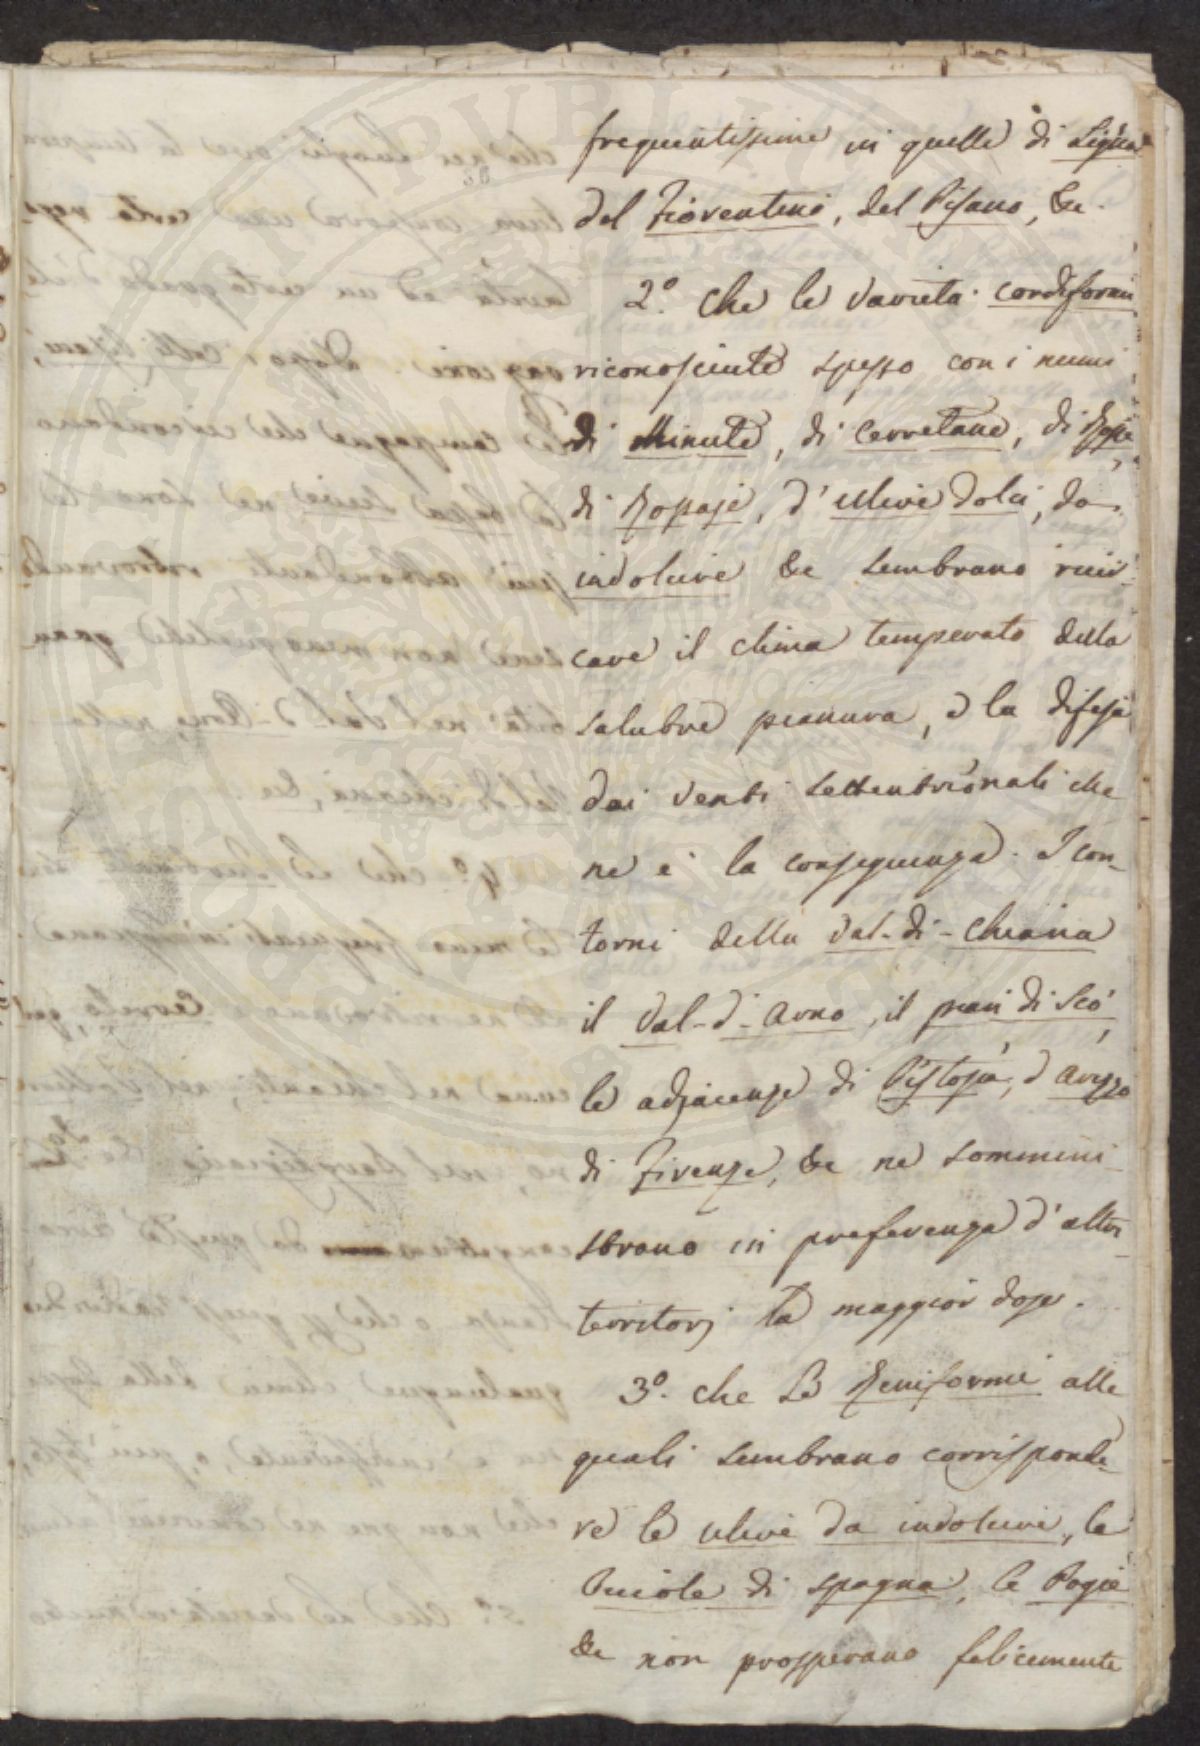 frequentissime in quelle di Signa
del Fiorentino, del Pisano, &c.
2.º che le varietà cordiformi
riconosciute spesso con i numi
di Minute, di Cerretane, di
di Rosaje, d'ulive dolci, da
indolcire &c sembrano ricer
care il clima temperato della
salubre pianura, e la difesa
dai venti settentrionali che
ne è la conseguenza. I con-
torni della Val-di-Chiana
il Val-d'-Arno, il pian di Scò,
le adjacenze di Pistoja, d'Arezzo
di Firenze, &c ne sommini
strano in preferenza d'altri
territorj la maggior dose.
3.º che le Reniformi alle
quali sembrano corrisponde-
re le ulive da indolcire, le
di Spagna, le
&c non prosperano felicemente